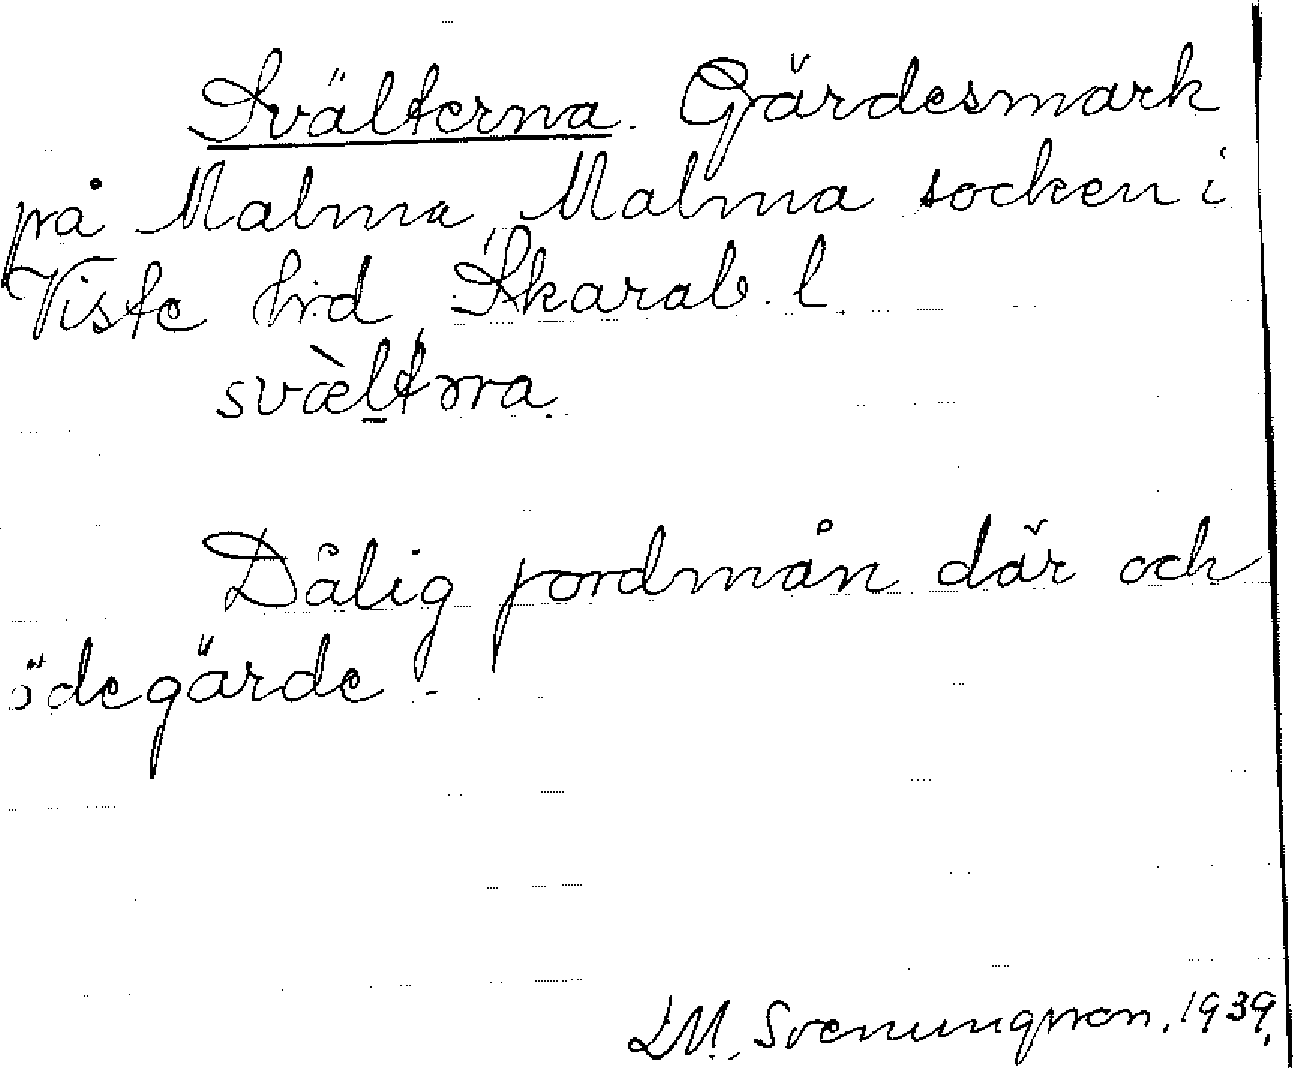 Svälterna. Gärdesmark
på Malma, Malma socken i
Viste hrd Skarab. l.
svæ̀ltɔrna.
Dålig jordmån där och
ödegärde.
LM. Svenungsson. 1939.